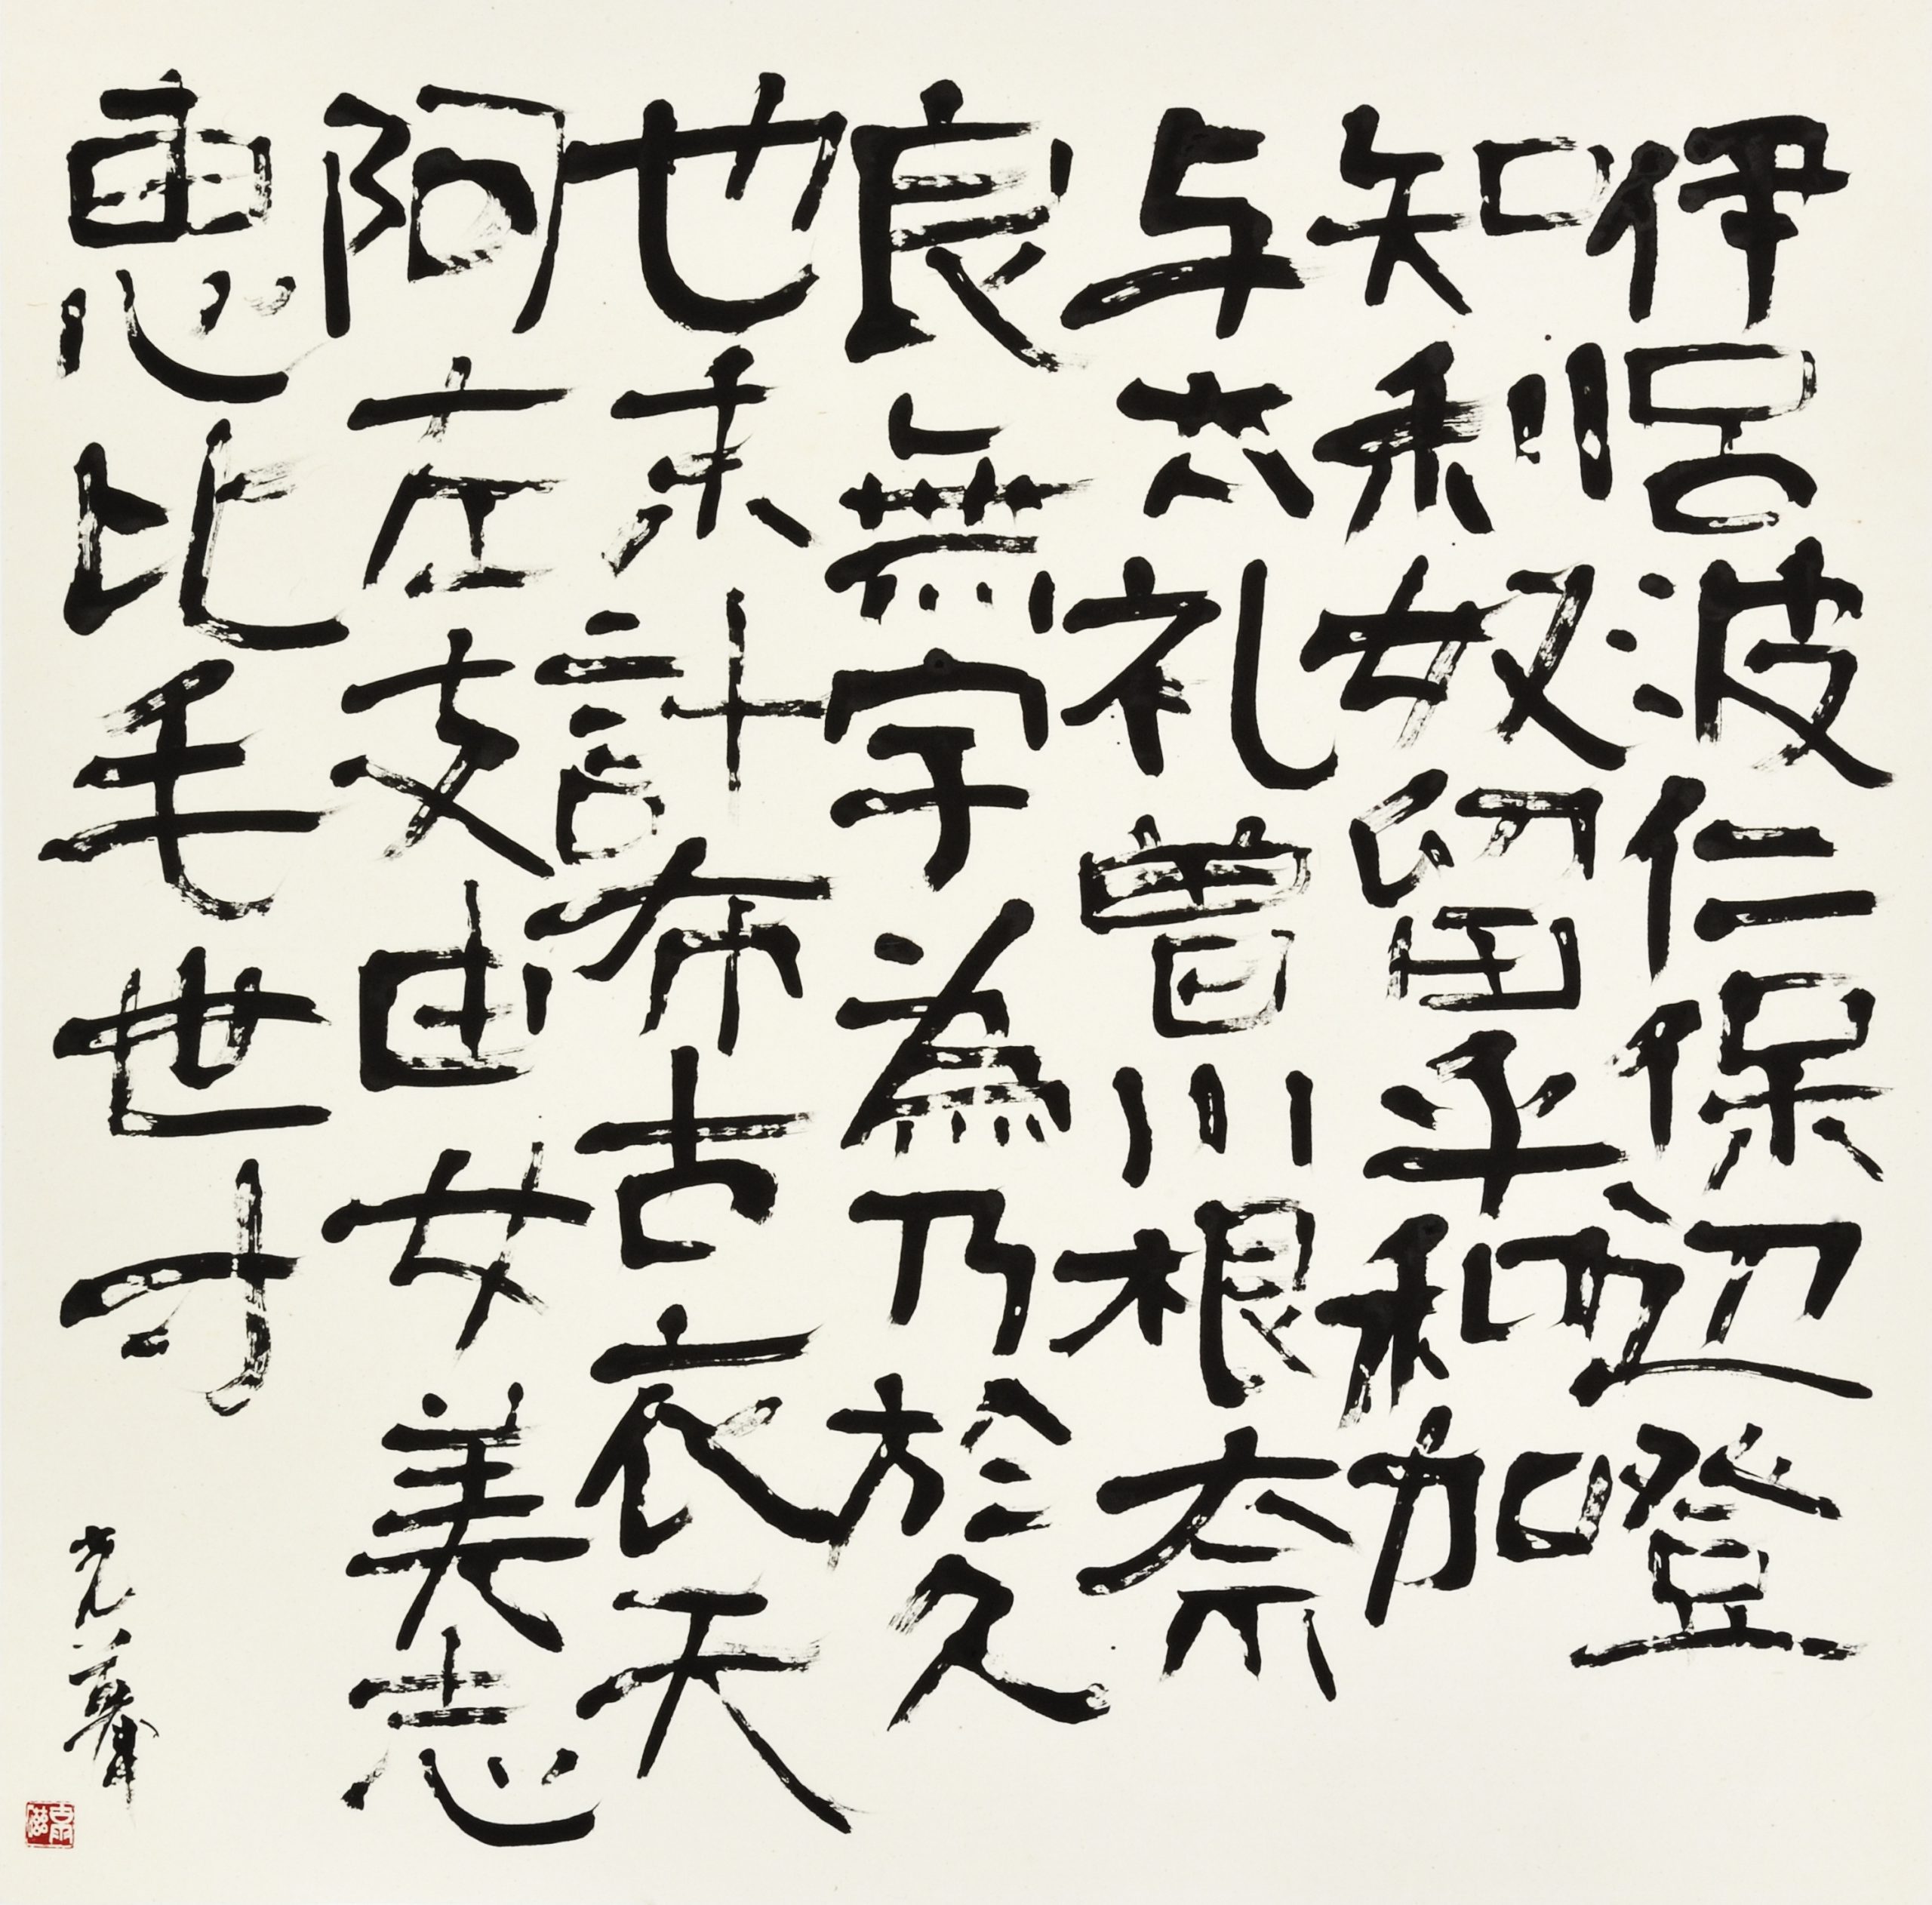 伊呂波仁保辺登
知利奴留乎和加
与太礼曽川根奈
良無宇為乃於久
也末計布古衣天
阿左支由女美志
恵比毛世寸